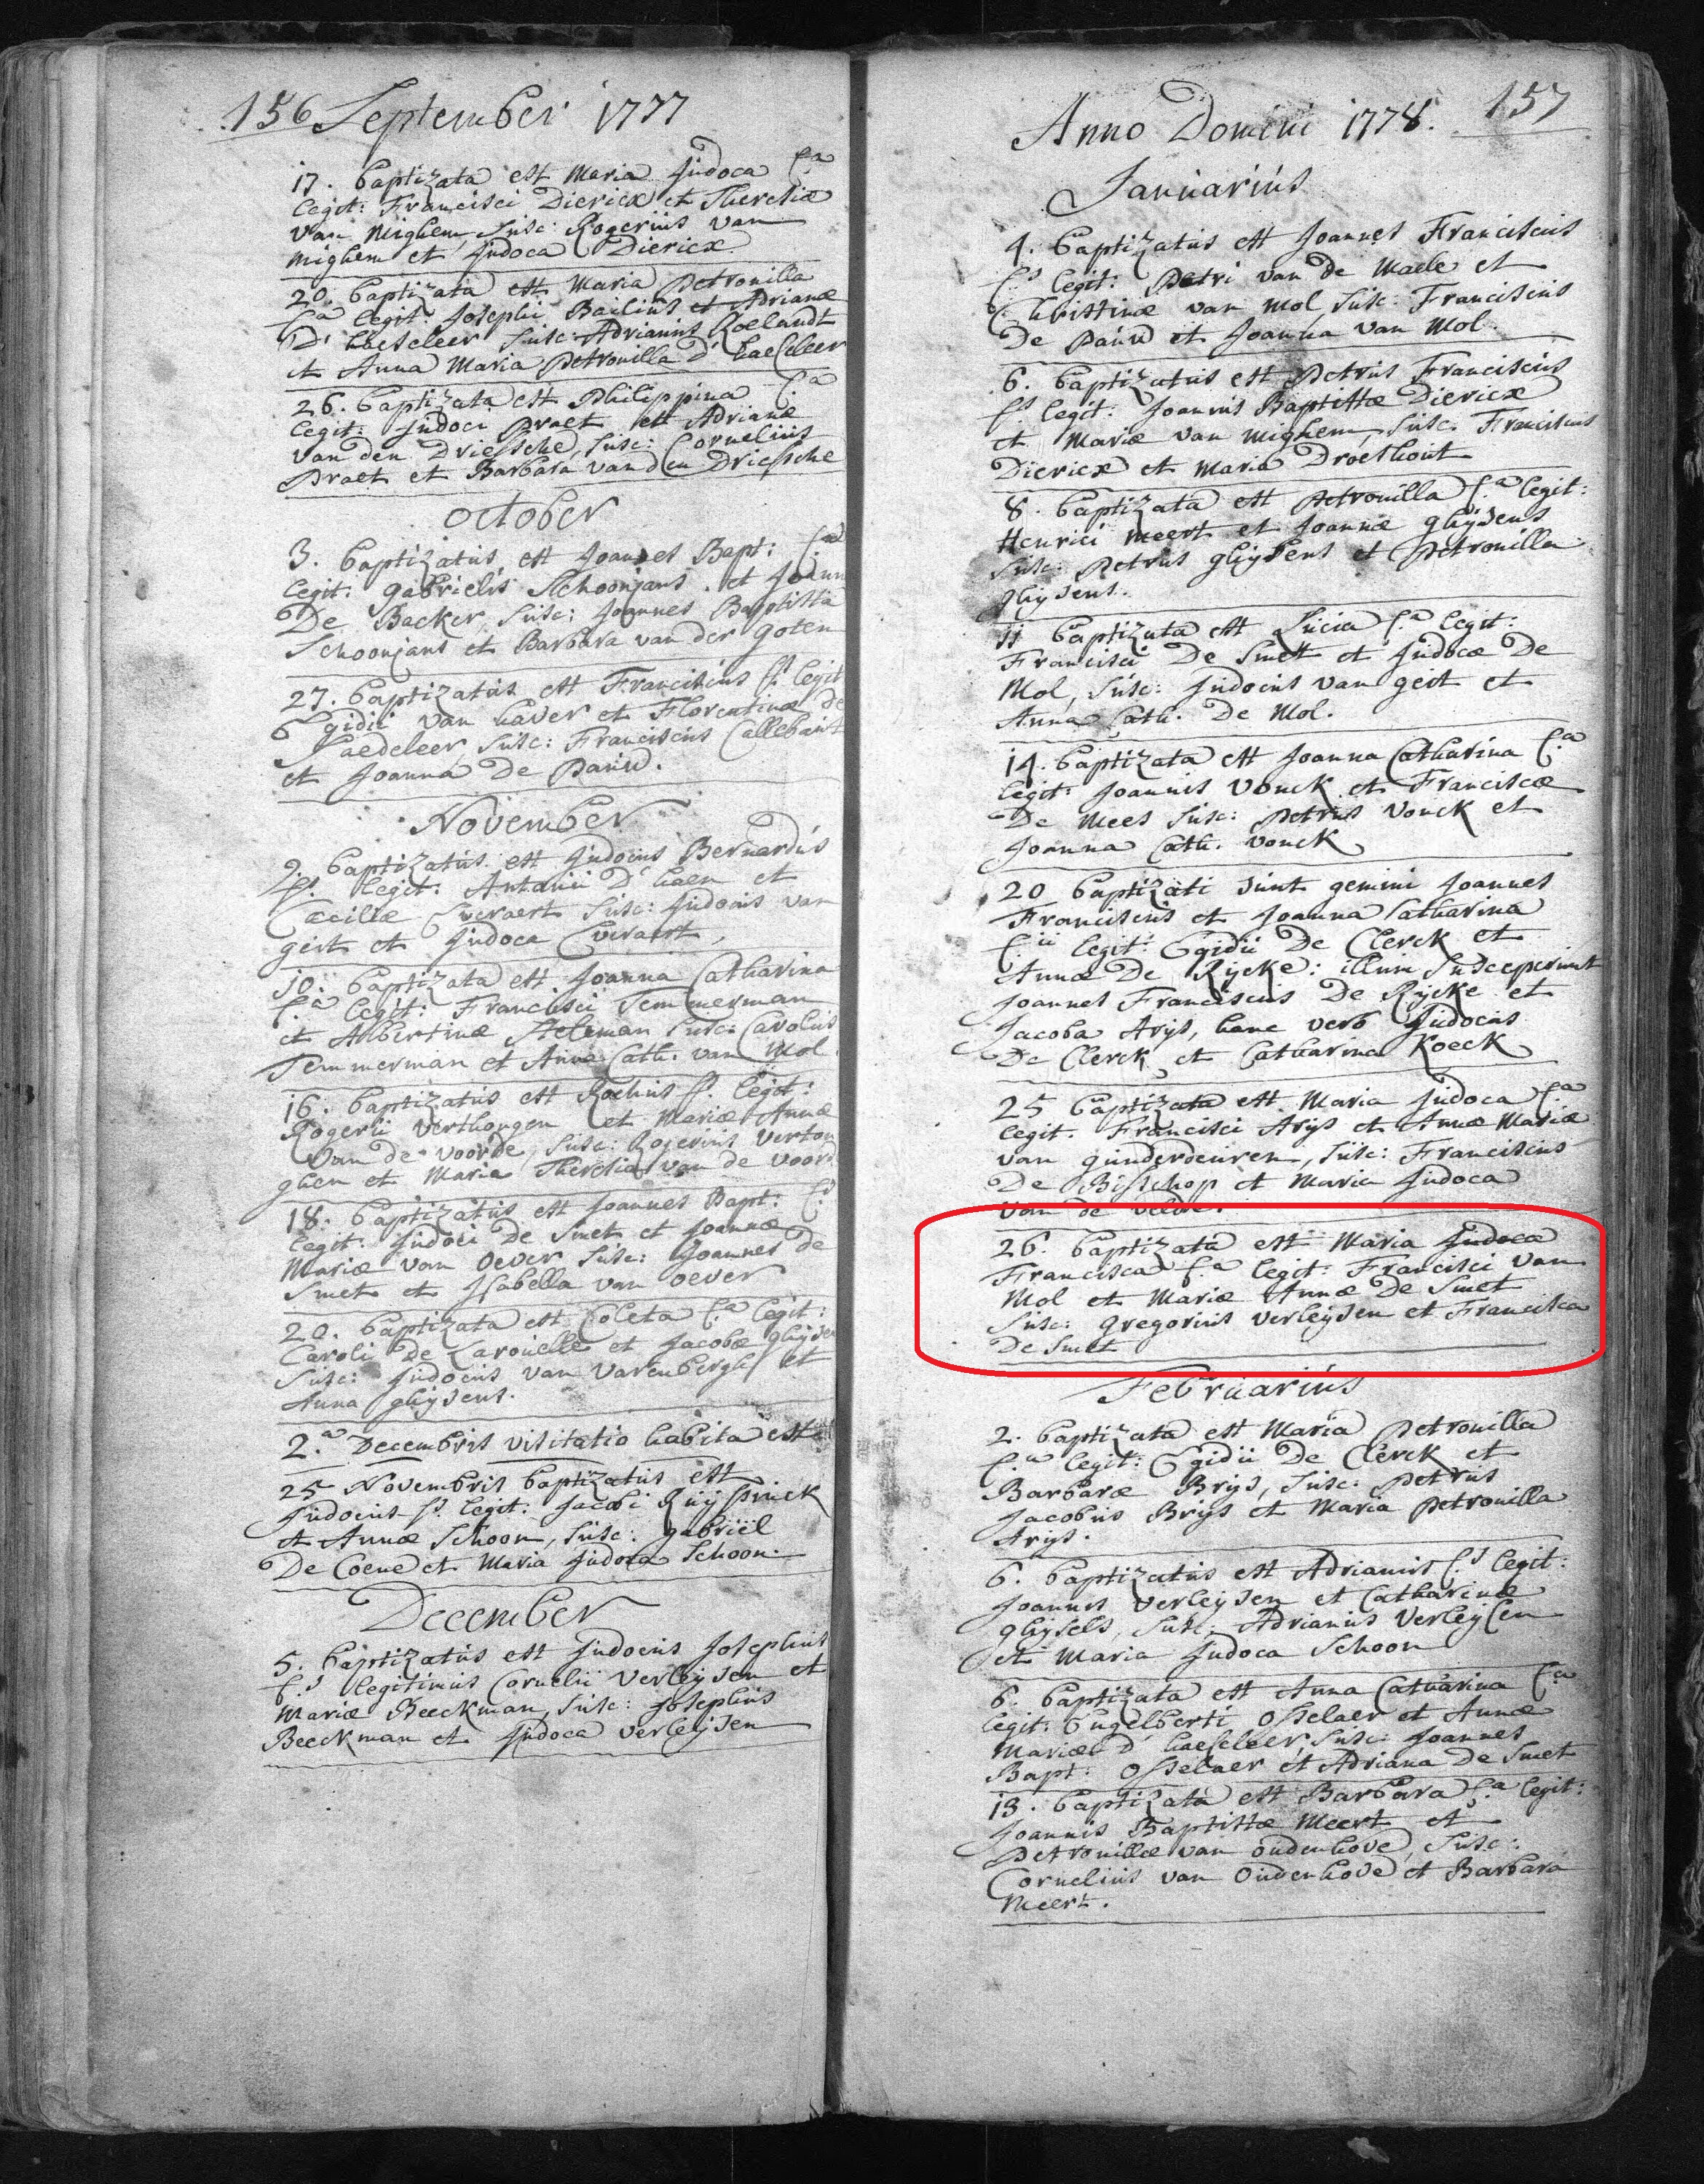 156 September 1777
17. baptizata est Maria Judoca f.a
legit: Francisci Dierickx et Theresiæ
van Mighem, Susc: Rogerius van
mighem et Judoca Dierickx
20. baptizata est Maria Petronilla
f.a legit: Josephi Bailius et Adrianæ
D' haeseleer Susc: Adrianus Roelandt
et Anna Maria Petronilla D' haeseleer
26. baptizata est Philippina f.a
legit: Judoci Praet et Adrianæ
van den Driessche, Susc: Cornelius
Praet et Barbara van den Driessche
October
3. baptizatus est Joannes Bapt: f.
legit: gabrielis Schoonjans et Joann
De Backer, Susc: Joannes Baptista
Schoonjans et Barbara van der goten
27. baptizatus est Franciscus f.s legit
Egidii van haver et Florentinæ de
Saedeleer, Susc: Franciscus Callebaut
et Joanna De Pauw.
November
9. baptizatus est Judocus Bernardus
f.s legit: Antonii D' haen et
Cæciliæ Everaert Susc: Judocus van
geit et Judoca Everaert,
10. baptizata est Joanna Catharina
f.a legit: Francisci Temmerman
et Albertinæ Steleman Susc: Carolus
Temmerman et Anna Cath. van Mol.
16. baptizatus est Rochus f.s legit:
Rogerii Verthongen et Mariæ Annæ
van de voorde, Susc: Rogerius verton
ghen et Maria Theresia van de voord
18. baptizatus est Joannes Bapt: f.s
legit: Judoci De Smet et Joannæ
Mariæ van Oever Susc: Joannes de
Smet et Isabella van oever
20. baptizata est Coleta f.a legit:
Caroli De Larouelle et Jacobæ ghijse
Susc: Judocus van varenbergh et
Anna ghijsens.
2.a Decembris visitatio habita est
25 Novembris baptizatus est
Judocus f.s legit: Jacobi Ruijssinck
et Annæ Schoon, Susc: gabriël
De Coene et Maria Judoca Schoon.
December
5. baptizatus est Judocus Josephus
f.s legitimus Cornelii Verleijsen et
Mariæ Beeckman, Susc: Josephus
Beeckman et Judoca verleijsen
157
Anno Domini 1778.
Januarius
4. baptizatus est Joannes Franciscus
f.s legit: Petri van de Maele et
Christinæ van Mol, Susc: Franciscus
De Pauw et Joanna van Mol.
6. baptizatus est Petrus Franciscus
f.s legit: Joannis Baptistæ Dierickx
et Mariæ van mighem, Susc: Franciscus
Dierickx et Maria Droeshout
8. baptizata est Petronilla f.a legit:
Henrici Meert et Joannæ ghijsens
Susc: Petrus ghijsens et Petronilla
ghijsens.
11 baptizata est Lucia f.a legit:
Francisci De Smet et Judocæ De
Mol, Susc: Judocus van geit et
Anna Cath. De Mol.
14. baptizata est Joanna Catharina f.a
legit: Joannis Vonck et Franciscæ
De Mees Susc: Petrus Vonck et
Joanna Cath. vonck
20 baptizati sunt gemini Joannes
Franciscus et Joanna Catharina
f.ii legit: Egidii De Clerck et
Annæ De Rijcke: illum Susceperunt
Joannes Franciscus De Rijcke et
Jacoba Arijs, hanc verò Judocus
De Clerck et Catharina Koeck
25 baptizata est Maria Judoca f.a
legit. Francisci Arijs et Annæ Mariæ
van gunderdeuren, Susc: Franciscus
De Bisschop et Maria Judoca
van de velde.
26. baptizata est Maria Judoca
Francisca f.a legit: Francisci van
Mol et Mariæ Annæ De Smet
Susc: gregorius verleijsen et Francisca
De Smet
Februarius
2. baptizata est Maria Petronilla
f.a legit: Egidii De Clerck et
Barbaræ Brijs, Susc: Petrus
Jacobus Brijs et Maria Petronilla
Arijs.
6. baptizatus est Adrianus f.s legit:
Joannis verleijsen et Catharinæ
ghijsels, Susc: Adrianus Verleijsen
et Maria Judoca Schoon
6. baptizata est Anna Catharina f.a
legit: Engelberti Osselaer et Annæ
Mariæ D' haeseleer, Susc: Joannes
Bapt: Osselaer et Adriana De Smet
13. baptizata est Barbara f.a legit:
Joannis Baptistæ Meert et
Petronillæ van oudenhove, Susc:
Cornelius van Oudenhove et Barbara
Meert.